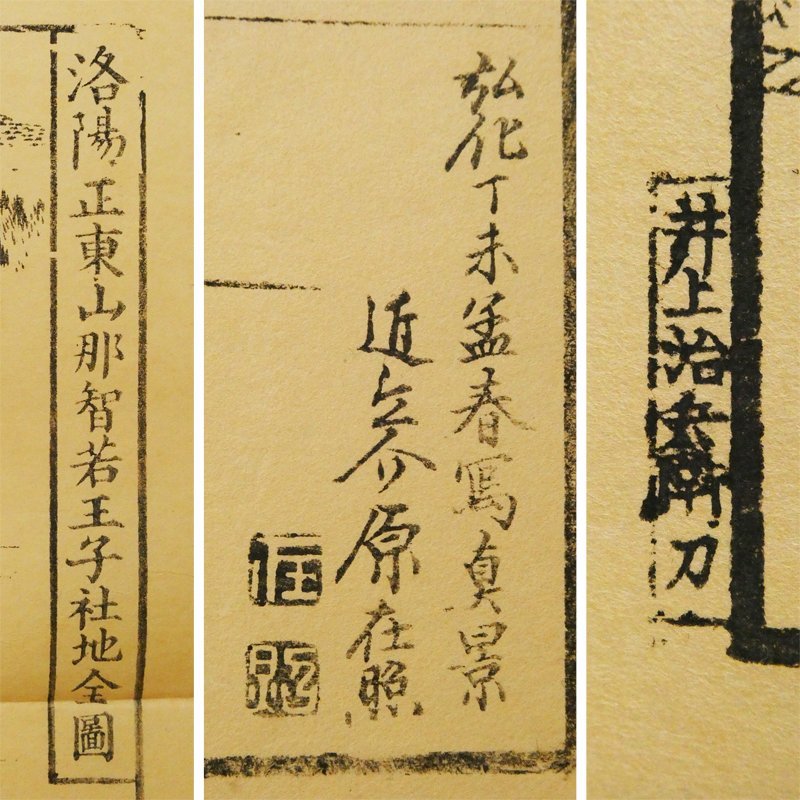 洛陽正東山那智若王子社地全圖
弘化丁未孟春寫真景
近江介原在照
井上治兵衛刀